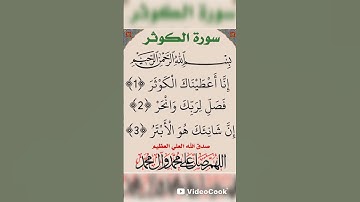 سورة الكوثر
بِسْمِ اللَّهِ الرَّحْمَٰنِ الرَّحِيمِ
إِنَّا أَعْطَيْنَاكَ الْكَوْثَرَ ﴿1﴾
فَصَلِّ لِرَبِّكَ وَانْحَرْ ﴿2﴾
إِنَّ شَانِئَكَ هُوَ الْأَبْتَرُ ﴿3﴾
صدق الله العلي العظيم
اللهم صل على محمد وآل محمد
VideoCook